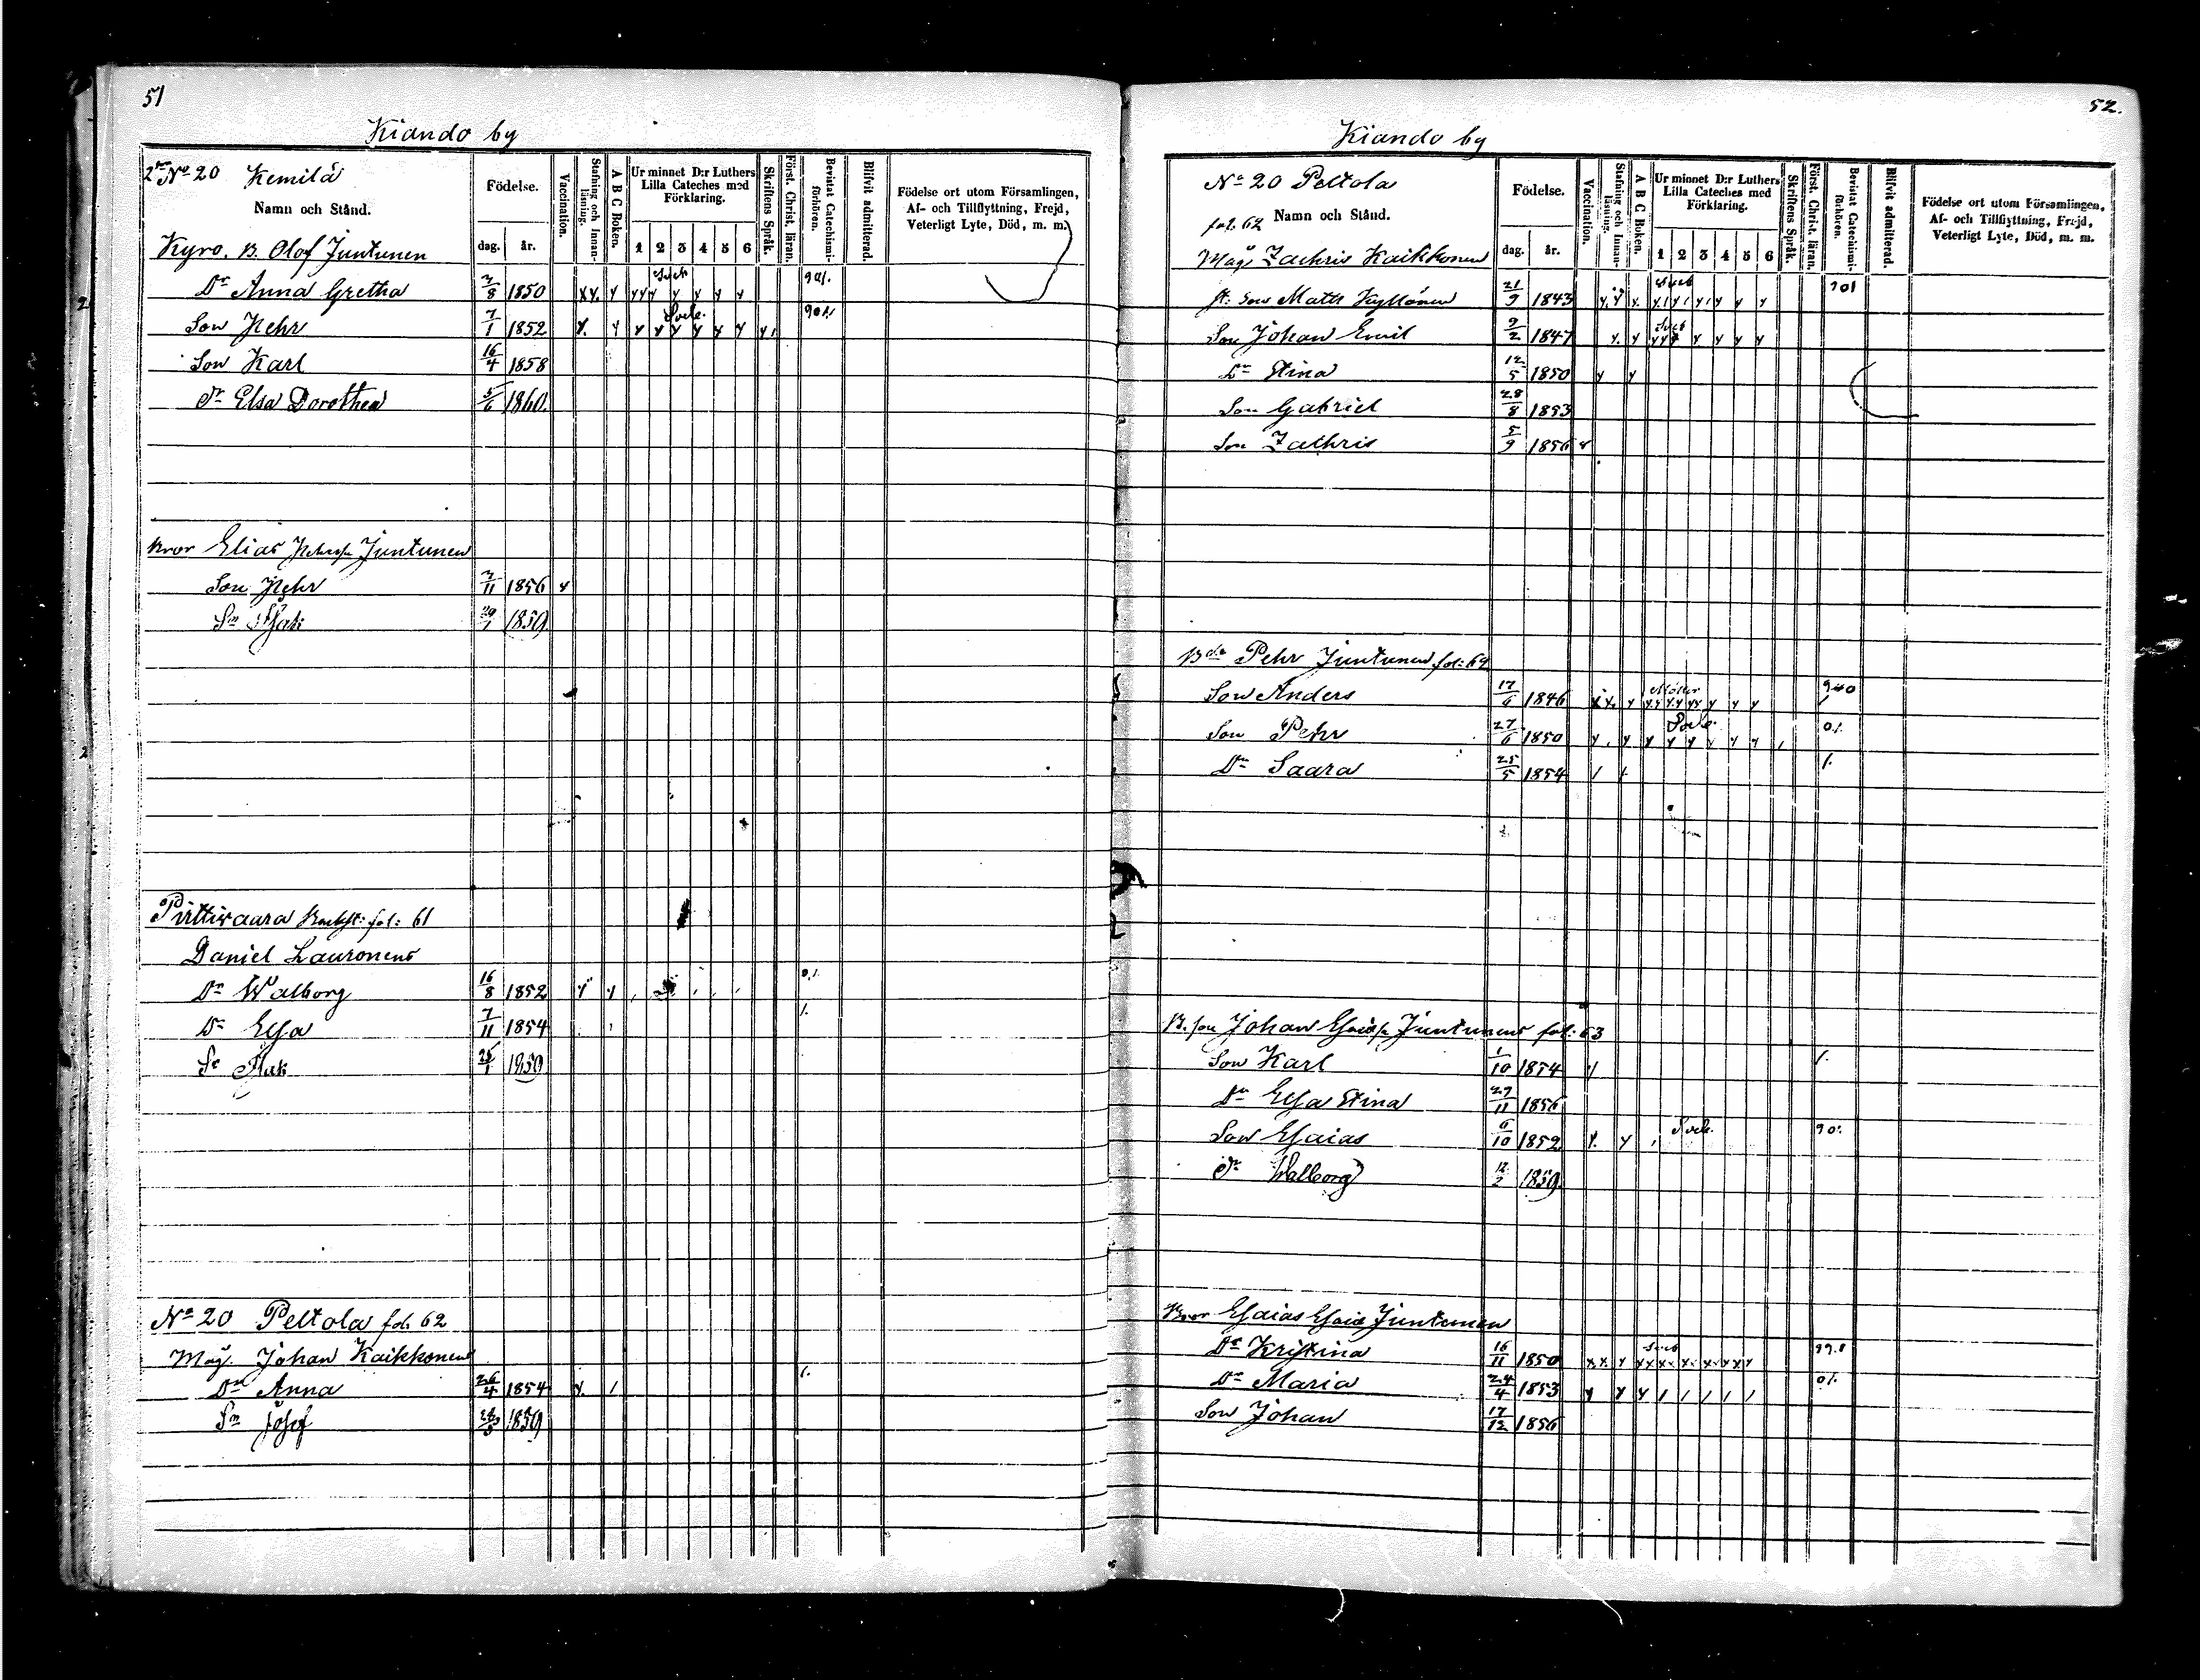 51
Kiando by
2ra No 20 Kemilä
Namn och Stånd.
Födelse.
dag. år.
Vaccination.
Stafning och Innanläsning.
A B C Boken.
Ur minnet D:r Luthers Lilla Cateches med Förklaring.
1 2 3 4 5 6
Skriftens Språk.
Först. Christ. läran.
Bevistat Catechismiförhören.
Blifvit admitterad.
Födelse ort utom Församlingen, Af- och Tillflyttning, Frejd, Veterligt Lyte, Död, m. m.
Kyro. B. Olof Juntunen
Dr Anna Gretha 7/8 1850 901.
Son Pehr 7/1 1852 Sveb. 901.
Son Karl 16/4 1858
Dr Elsa Dorothea 5/6 1860.
Bror Elias Juntunen
Son Pehr 7/11 1856
Sn Isak 1859
Pirttiwaara fol: 61
Daniel Lauronens
Dr Walborg 16/8 1852 01.
Dr Elsa 7/11 1854 1.
Isak 1859
No 20 Peltola fol. 62
Måg. Johan Kaikkonens
Dr Anna 26/4 1854 1.
Sn Josef 1859
52.
Kiando by
No 20 Peltola
fol. 62
Namn och Stånd.
Födelse.
dag. år.
Vaccination.
Stafning och Innanläsning.
A B C Boken.
Ur minnet D:r Luthers Lilla Cateches med Förklaring.
1 2 3 4 5 6
Skriftens Språk.
Först. Christ. läran.
Bevistat Catechismiförhören.
Blifvit admitterad.
Födelse ort utom Församlingen, Af- och Tillflyttning, Frejd, Veterligt Lyte, Död, m. m.
Måg. Zachris Kaikkonen
st: son Matts Kyllönen 21/9 1843 Sveb 901
Son Johan Emil 9/2 1847 Sveb
Dr Stina 12/5 1850
Son Gabriel 28/8 1853
Son Zachris 5/9 1856
Bdr Pehr Juntunen fol:
Son Anders 17/6 1846 Möller
Son Pehr 27/6 1850 Sveb. 01.
Dr Saara 25/5 1854 1.
B. son Johan Esaiss. Juntunens fol: 63
Son Karl 1/10 1854 1.
Dr Elsa Stina 29/11 1856
Son Esaias 6/10 1852 Sveb. 901
Dr Walborg 12/2 1859.
Bror Esaias Juntunen
Dr Kristina 16/11 1850 Sveb
Dr Maria 24/4 1853 01.
Son Johan 17/12 1856